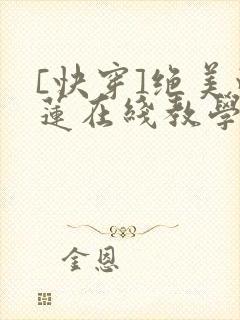 [快穿]绝美
莲在线教学
金恩